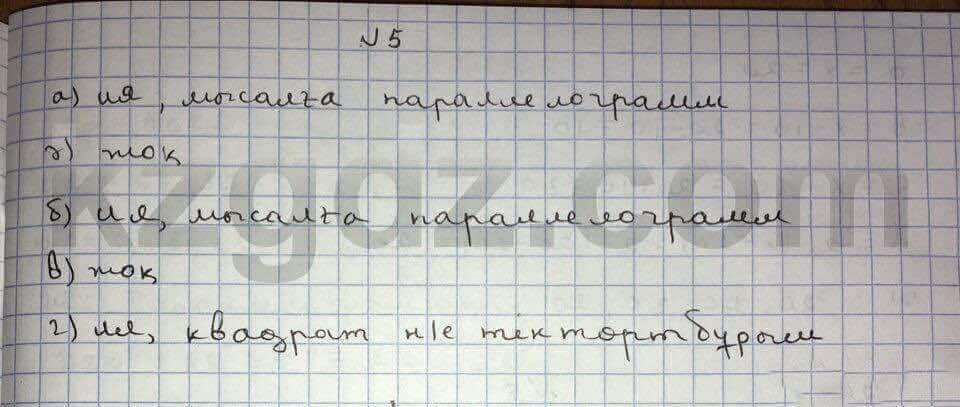 № 5
а) ия, мысалға параллелограмм
ә) жок
б) ия, мысалға параллелограмм
в) жок
г) ия, квадрат н/е тіктортбұрыш
kzgdz.com